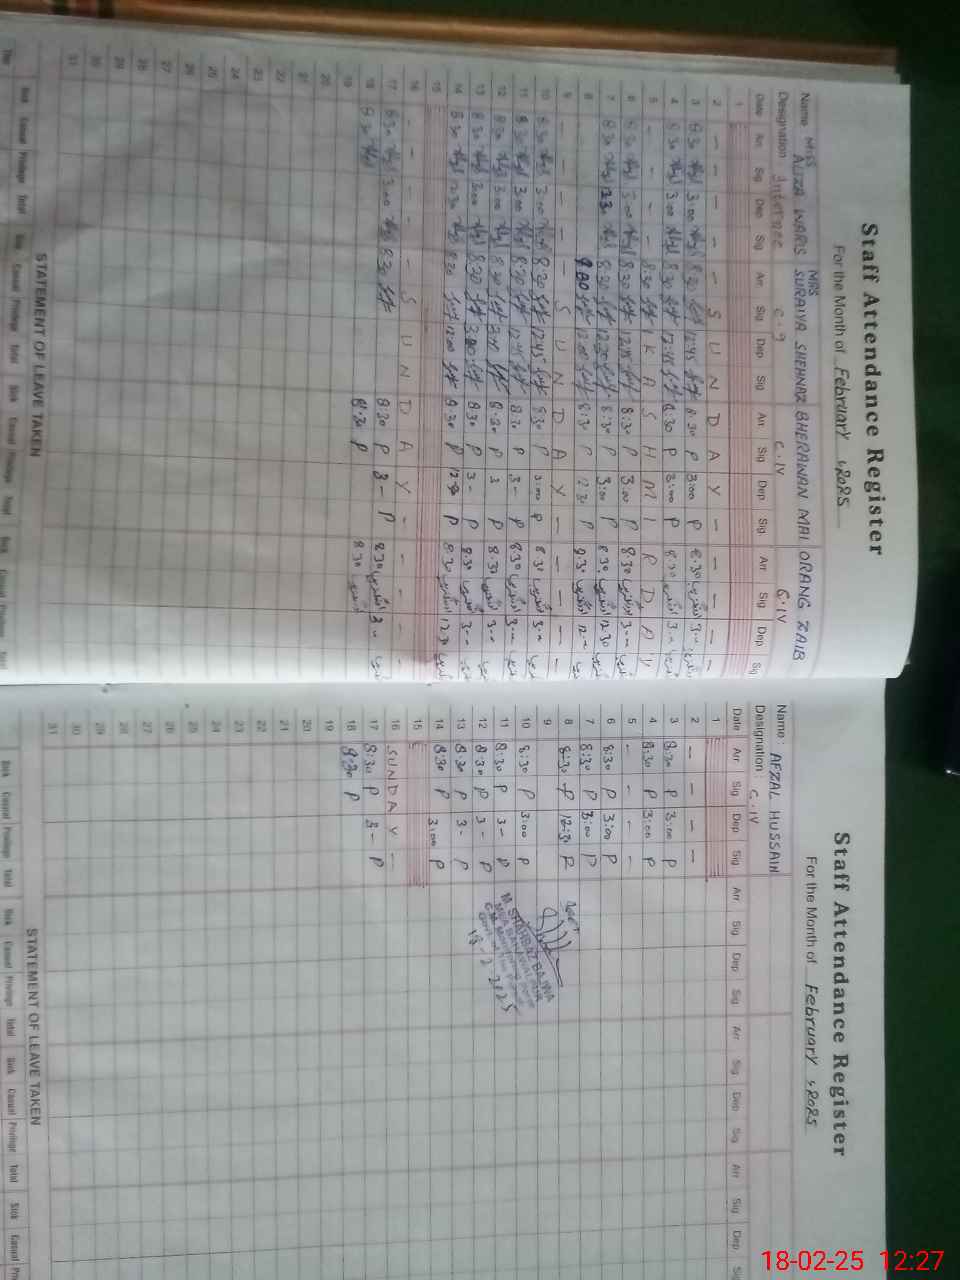 Staff Attendance Register
For the Month of February, 2025
Name MISS ALIZA WARIS MRS SURAIYA SHEHNAZ BHERAWAN MAI ORANG ZAIB
Designation Internee C-9 C.IV C.IV
Date Arr Sig Dep Sig Arr Sig Dep Sig Arr Sig Dep Sig Arr Sig Dep Sig
1
2 - - - - - S U N D A Y - - - -
3 8:30 3:00 8:30 12:45 8:30 P 3:00 P 8:30 3-
4 8:30 3:00 8:30 12:45 8:30 P 3:00 P 8:30 3-
5 - - - - 8:30 K A S H M I R D A Y
6 8:30 3:00 8:30 12:45 8:30 P 3:00 P 8:30 3--
7 8:30 12:30 8:30 12:30 8:30 P 3:00 P 8:30 12:30
8 8:30 12:00 8:30 P 12:30 P 8:30 12--
9 - - - - - S U N D A Y - - - -
10 8:30 3:00 8:30 12:45 8:30 P 3:00 P 8:30 3--
11 8:30 3:00 8:30 12:45 8:30 P 3- P 8:30 3--
12 8:30 3:00 8:30 3:00 8:30 P 3 P 8:30 3--
13 8:30 3:00 8:30 3:00 8:30 P 3- P 8:30 3--
14 8:30 12:30 8:30 12:00 8:30 P 12:30 P 8:30 12:30
15
16 - - - - - S U N D A Y - - - -
17 8:30 3:00 8:30 8:30 P 3- P 8:30 3--
18 8:30 8:30 P 8:30
19
20
21
22
23
24
25
26
27
28
29
30
31
STATEMENT OF LEAVE TAKEN
Sick Casual Privilege Total Sick Casual Privilege Total Sick Casual Privilege Total Sick Casual Privilege Total
Staff Attendance Register
For the Month of February, 2025
Name : AFZAL HUSSAIN
Designation : C.IV
Date Arr Sig Dep Sig Arr Sig Dep Sig Arr Sig Dep Sig Arr Sig Dep Sig
1
2 - - - -
3 8:30 P 3:00 P
4 8:30 P 3:00 P
5 - - - -
6 8:30 P 3:00 P
7 8:30 P 3:00 P
8 8:30 P 12:30 P
9
10 8:30 P 3:00 P
11 8:30 P 3- P
12 8:30 P 3- P
13 8:30 P 3- P
14 8:30 P 3:00 P
15
16 SUNDAY -
17 8:30 P 3- P
18 8:30 P
19
20
21
22
23
24
25
26
27
28
29
30
31
M. SHAHBAZ BAJWA
MEA BAHAWALPUR
C.M. Monitoring Force
Govt. of The Punjab
18-2-2025
STATEMENT OF LEAVE TAKEN
Sick Casual Privilege Total Sick Casual Privilege Total Sick Casual Privilege Total Sick Casual
18-02-25 12:27